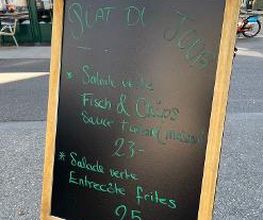 PLAT DU JOUR
* Salade verte
Fisch & Chips
Sauce Tartare maison
23-
* Salade verte
Entrecôte frites
25